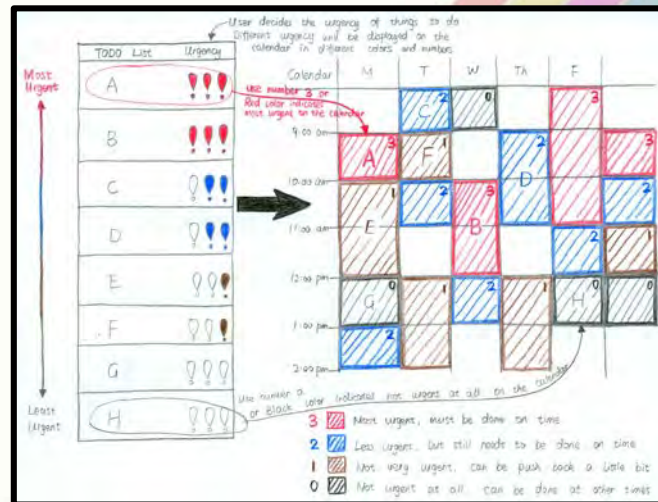 User decides the urgency of things to do
Different urgency will be displayed on the
calendar in different colors and numbers
TODO List Urgency
Most Urgent
A
B
C
D
E
F
G
H
Least Urgent
Use number 3 or
Red color indicates
most urgent on the calendar
Calendar M T W Th F
C 2
0
3
9:00 am
A 3
F 1
D 2
3
10:00 am
E 1
2
B 3
2
11:00 am
2
1
12:00 pm
G 0
1
2
1
H 0
0
1:00 pm
2
2:00 pm
Use number 0
or Black color indicates not urgent at all on the calendar
3 Most urgent, must be done on time
2 Less urgent, but still needs to be done on time
1 Not very urgent, can be push back a little bit
0 Not urgent at all can be done at other times